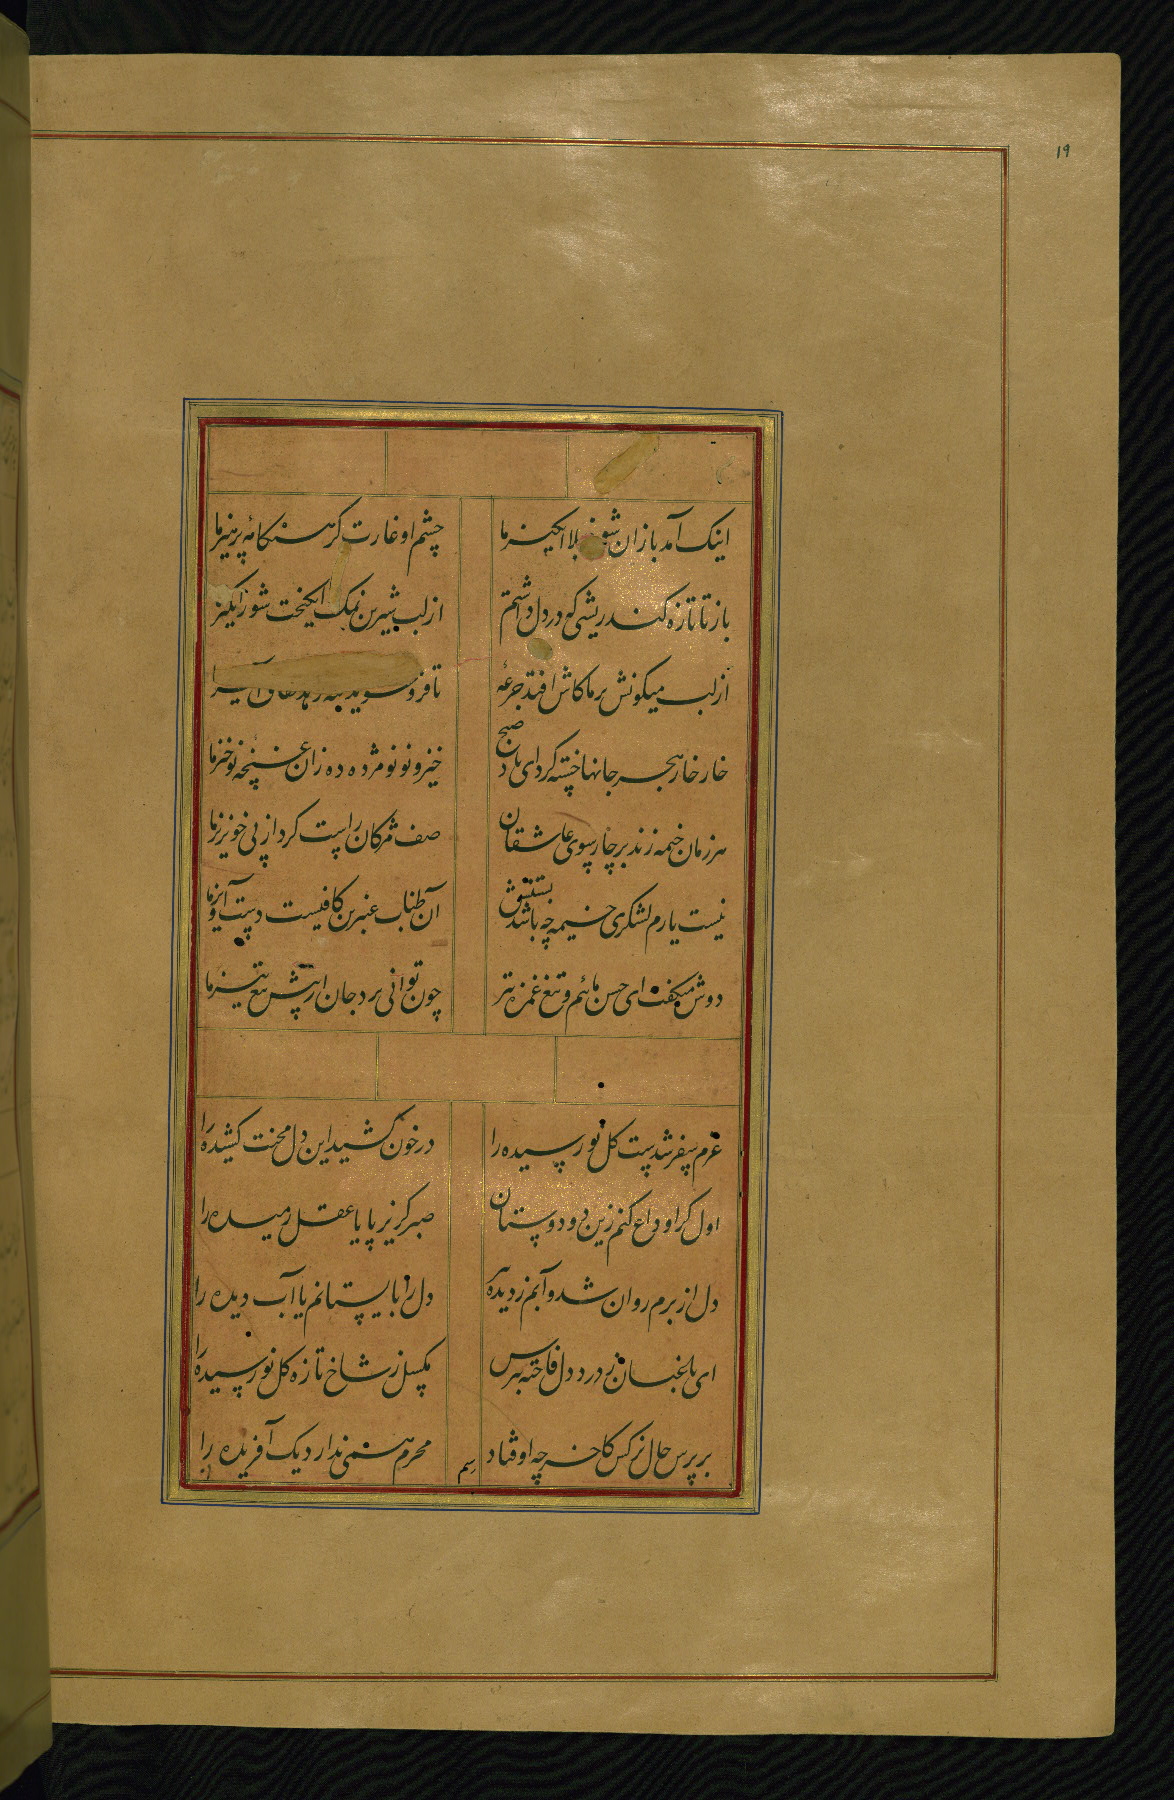 ۱۹
اینک آمد باز آن شوخ بلا انگیز ما
چشم او غارت کر هنکامهٔ پرهیز ما
باز تا تازه کند ریشی که در دل داشتم
از لب شیرین نمک انکیخت شور انکیز
از لب میکونش بر ما کاش افتد جرعهٔ
تا فرو شوید
خار خار هجر جانها خسته کرد ای باد صبح
خیز و نو نو مژده ده زان غنچه نوخیز ما
هر زمان خیمه زند بر چارسوی عاشقان
صف مژکان راست کرد از پی خونریز ما
نیست یارم لشکری خیمه چه باشد بستنش
آن طناب عنبرین کافیست دست آویز ما
دوش میکفت ای حسن مائیم و تیغ غمزه تیز
چون توانی برد جان از پیش تیغ تیز ما
عزم سفر شدست کل نورسیده را
در خون کشید این دل محنت کشیده را
اول کرا وداع کنم زین دو دوستان
صبر کریز پا یا عقل رمیده را
دل از برم روان شد و آبم ز دیده هم
دل را بایستانم یا آب دیده را
ای باغبان ز درد دل فاخته بترس
مکسل ز شاخ تازه کل نورسیده را
بر پرس حال نرکس کاخر چه اوفتاد
محرم همی ندارد یک آفریده را